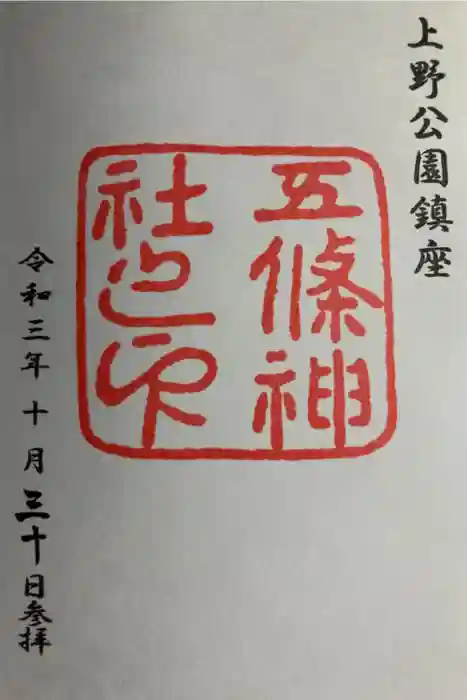 上野公園鎮座
五條神
社之印
令和三年十月三十日参拝